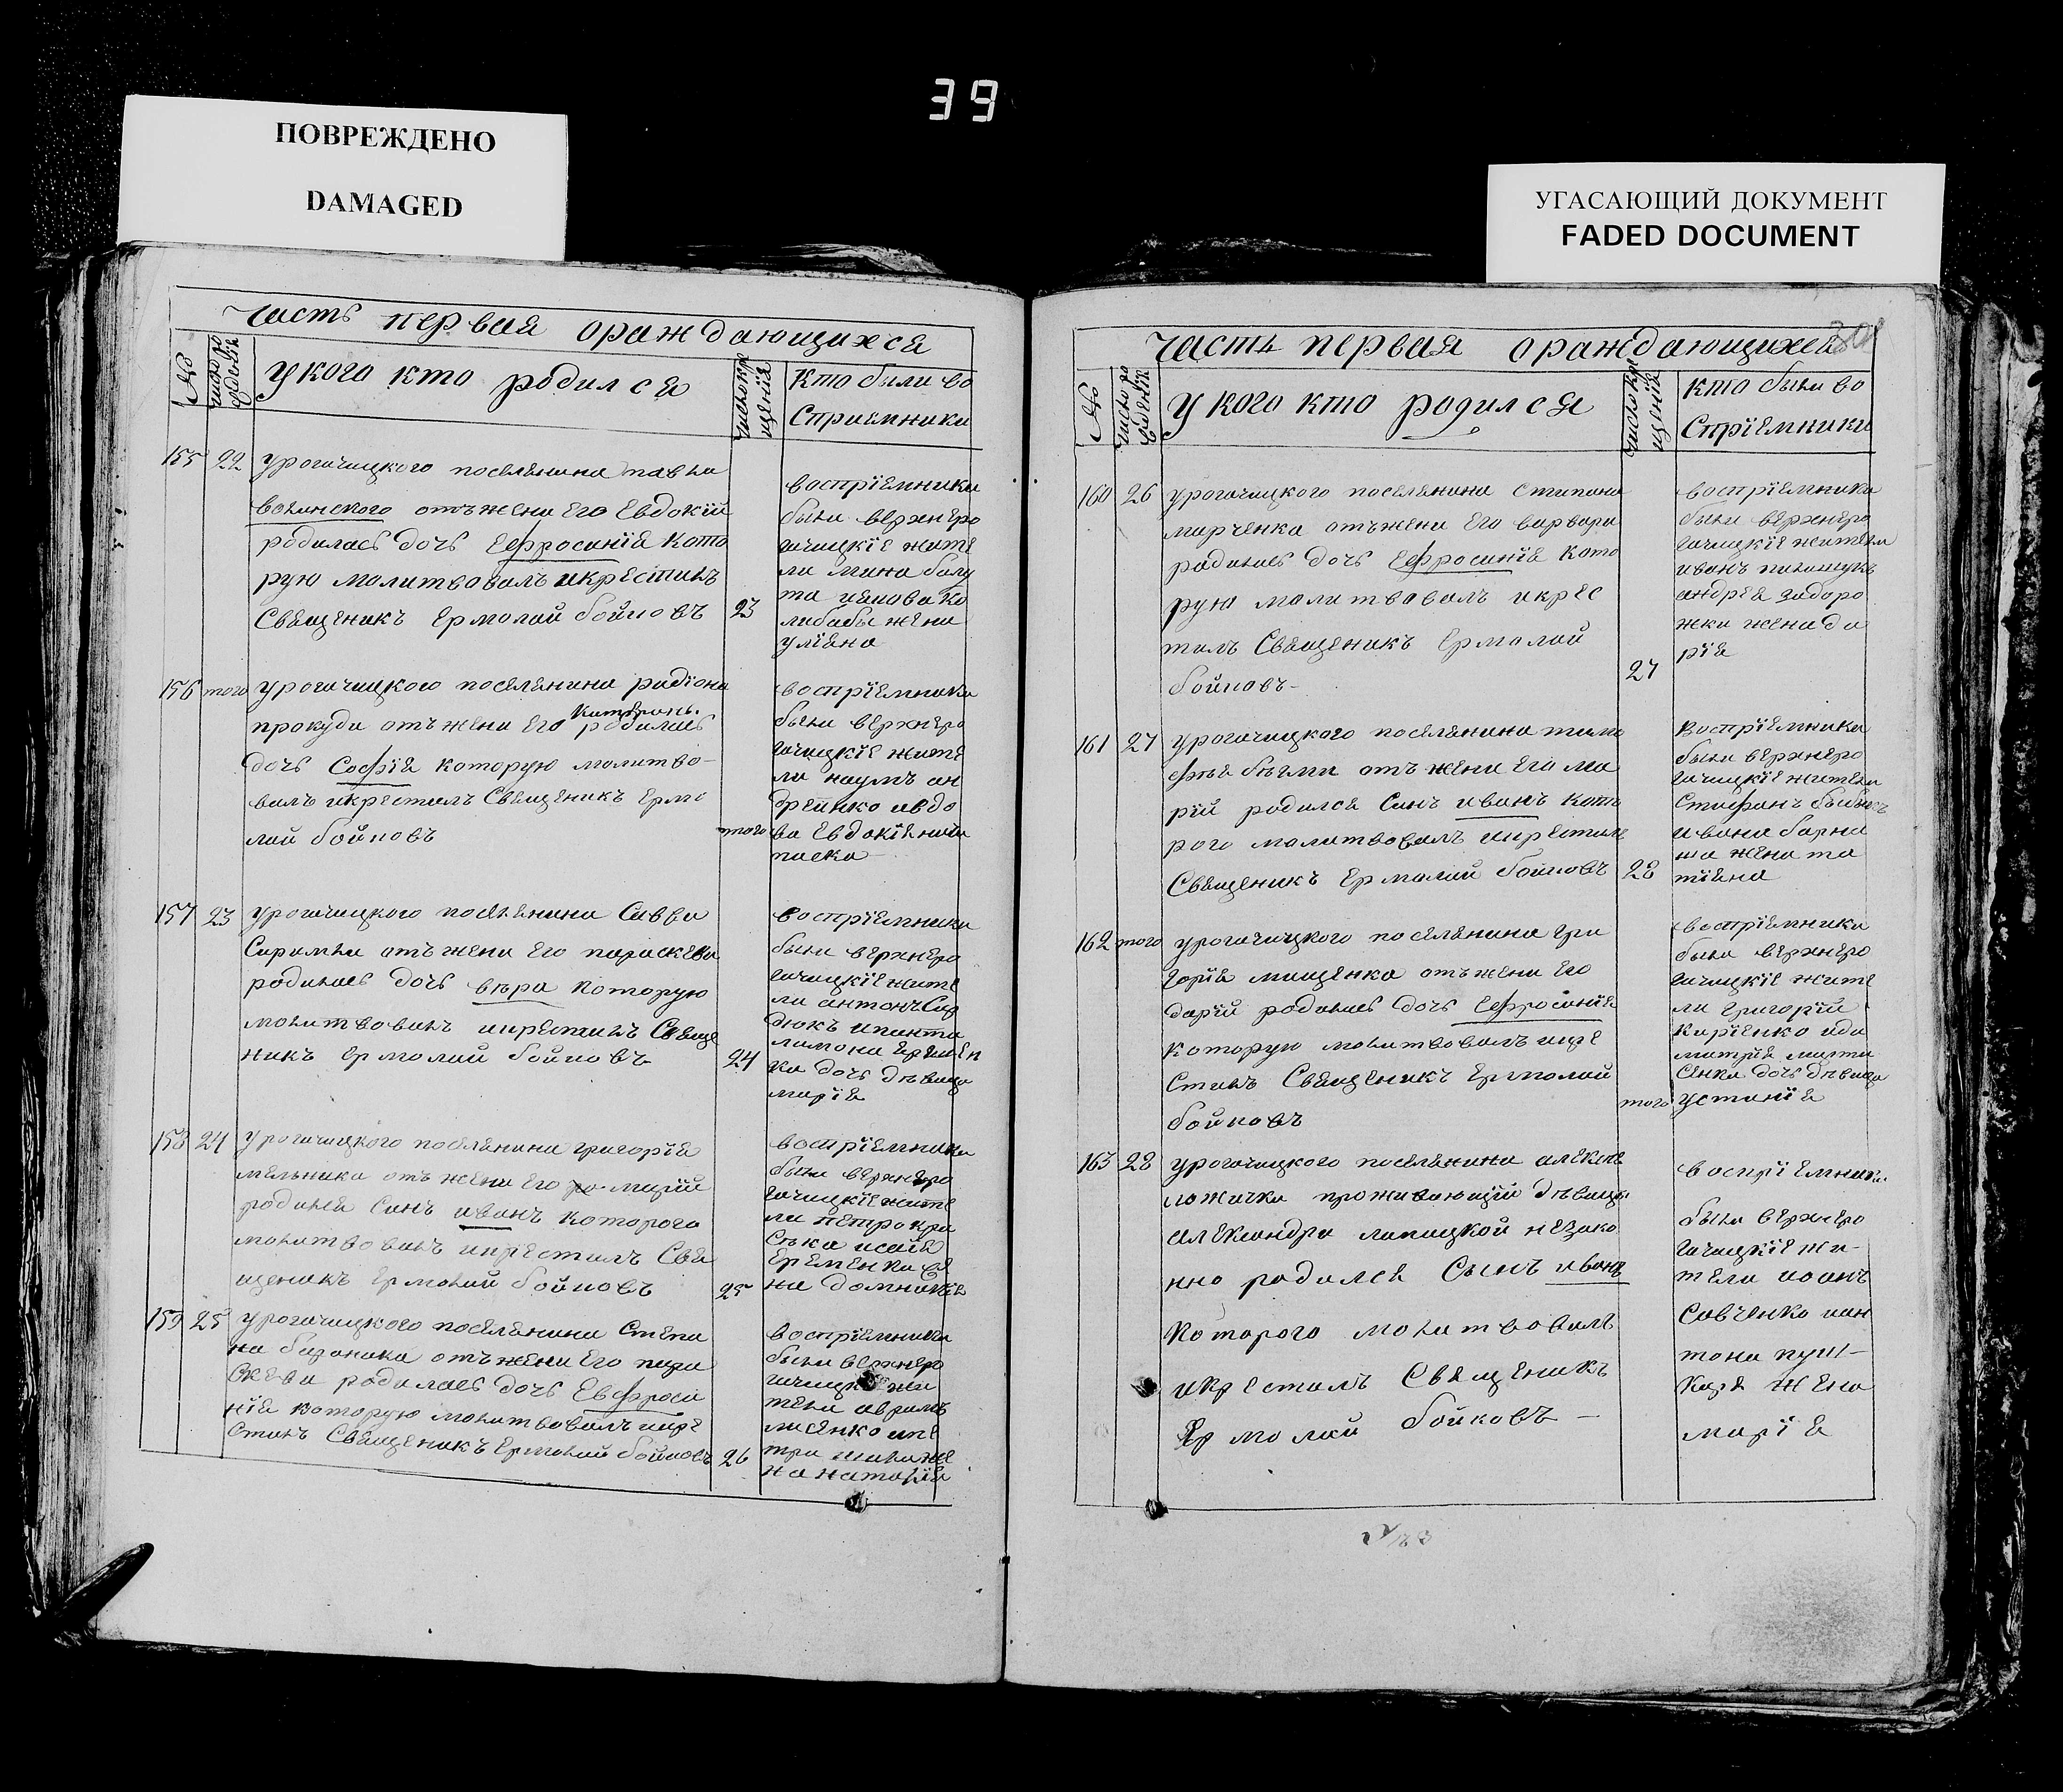 39
ПОВРЕЖДЕНО
DAMAGED
УГАСАЮЩИЙ ДОКУМЕНТ
FADED DOCUMENT
часть первая ораждающихся
№
число рождения
у кого кто родился
число крещения
Кто были во
Сприемники
155 22 урогачицкого поселянина павла
волинского отъ жени его Евдокій
родилась дочь Ефросинія кото
рую молитвовалъ и крестилъ
Священикъ Ермолай бойковъ 23
воспріемники
были верхнеро
гачицкіе жите
ли мина балу
та иякова ко
либабы жена
уліяна
156 того урогачицкого поселянина радіона
прокуди отъ жени его родилась
дочь Софія которую молитво-
валъ и крестилъ Священикъ Ермо
лай бойковъ того
воспріемники
были верхнеро
гачицкіе жите
ли наумъ ан
дрейнко авдо
157 23 урогачицкого поселянина Савви
отъ жени его параскеви
родилась дочь вѣра которую
молитвовалъ и крестилъ Свяще
никъ Ермолай бойковъ 24
воспріемники
были верхнеро
гачицкіе жите
ли антонъ Сер
дюкъ ипанта
лимона Еремен
ка дочь дѣвица
марія
158 24 урогачицкого поселянина григорія
мельника отъ жени его марій
родился Синъ иванъ которого
молитвовалъ и крестилъ Свя
щеникъ Ермолай бойковъ 25
воспріемники
были верхнеро
гачицкіе жите
ли петро кра
Еременка же
на домникія
159 25 урогачицкого поселянина Степа
на отъ жени его пара
скеви родилась дочь Евфроси
нія которую молитвовалъ и кре
стилъ Священикъ Ермолай бойковъ 26
воспріемники
были верхнеро
гачицкіе жи
тели аврамъ
лисенко ипе
на наталія
часть первая ораждающихся
№
число рождения
у кого кто родился
число крещения
кто были во
Спріемники
160 26 урогачицкого поселянина Стипана
марченка отъ жени его варвари
родилась дочь Ефросинія кото
рую молитвовалъ и крес
тилъ Священикъ Ермолай
бойковъ- 27
воспріемники
были верхнеро
гачицкіе жители
иванъ
андрея задоро
жки жена да
рія
161 27 урогачицкого поселянина тимо
фѣя отъ жени его ма
рій родился Синъ иванъ кото
рого молитвовалъ и крестилъ
Священикъ Ермолай бойковъ 28
Воспріемники
были верхнеро
гачицкіе жители
Стефанъ
ивана
жена та
тіяна
162 того урогачицкого поселянина гри
горія мищенка отъ жени его
дарій родилась дочь Ефросинія
которую молитвовалъ и кре
стилъ Священикъ Ермолай
бойковъ того
воспріемники
были верхнеро
гачицкіе жите
ли григорій
киріенко иди
митрія марти
сенка дочь дѣвица
устинія
163 28 урогачицкого поселянина алексѣя
ложичка проживающій дѣвицы
александри липицкой незако
нно родился Сынъ иванъ
которого молитвовалъ
и крестилъ Священикъ
Ермолай бойковъ -
воспріемники
были верхнеро
гачицкіе жи-
тели иоанъ
Савченко иан
тона пуш-
каря жена
марія